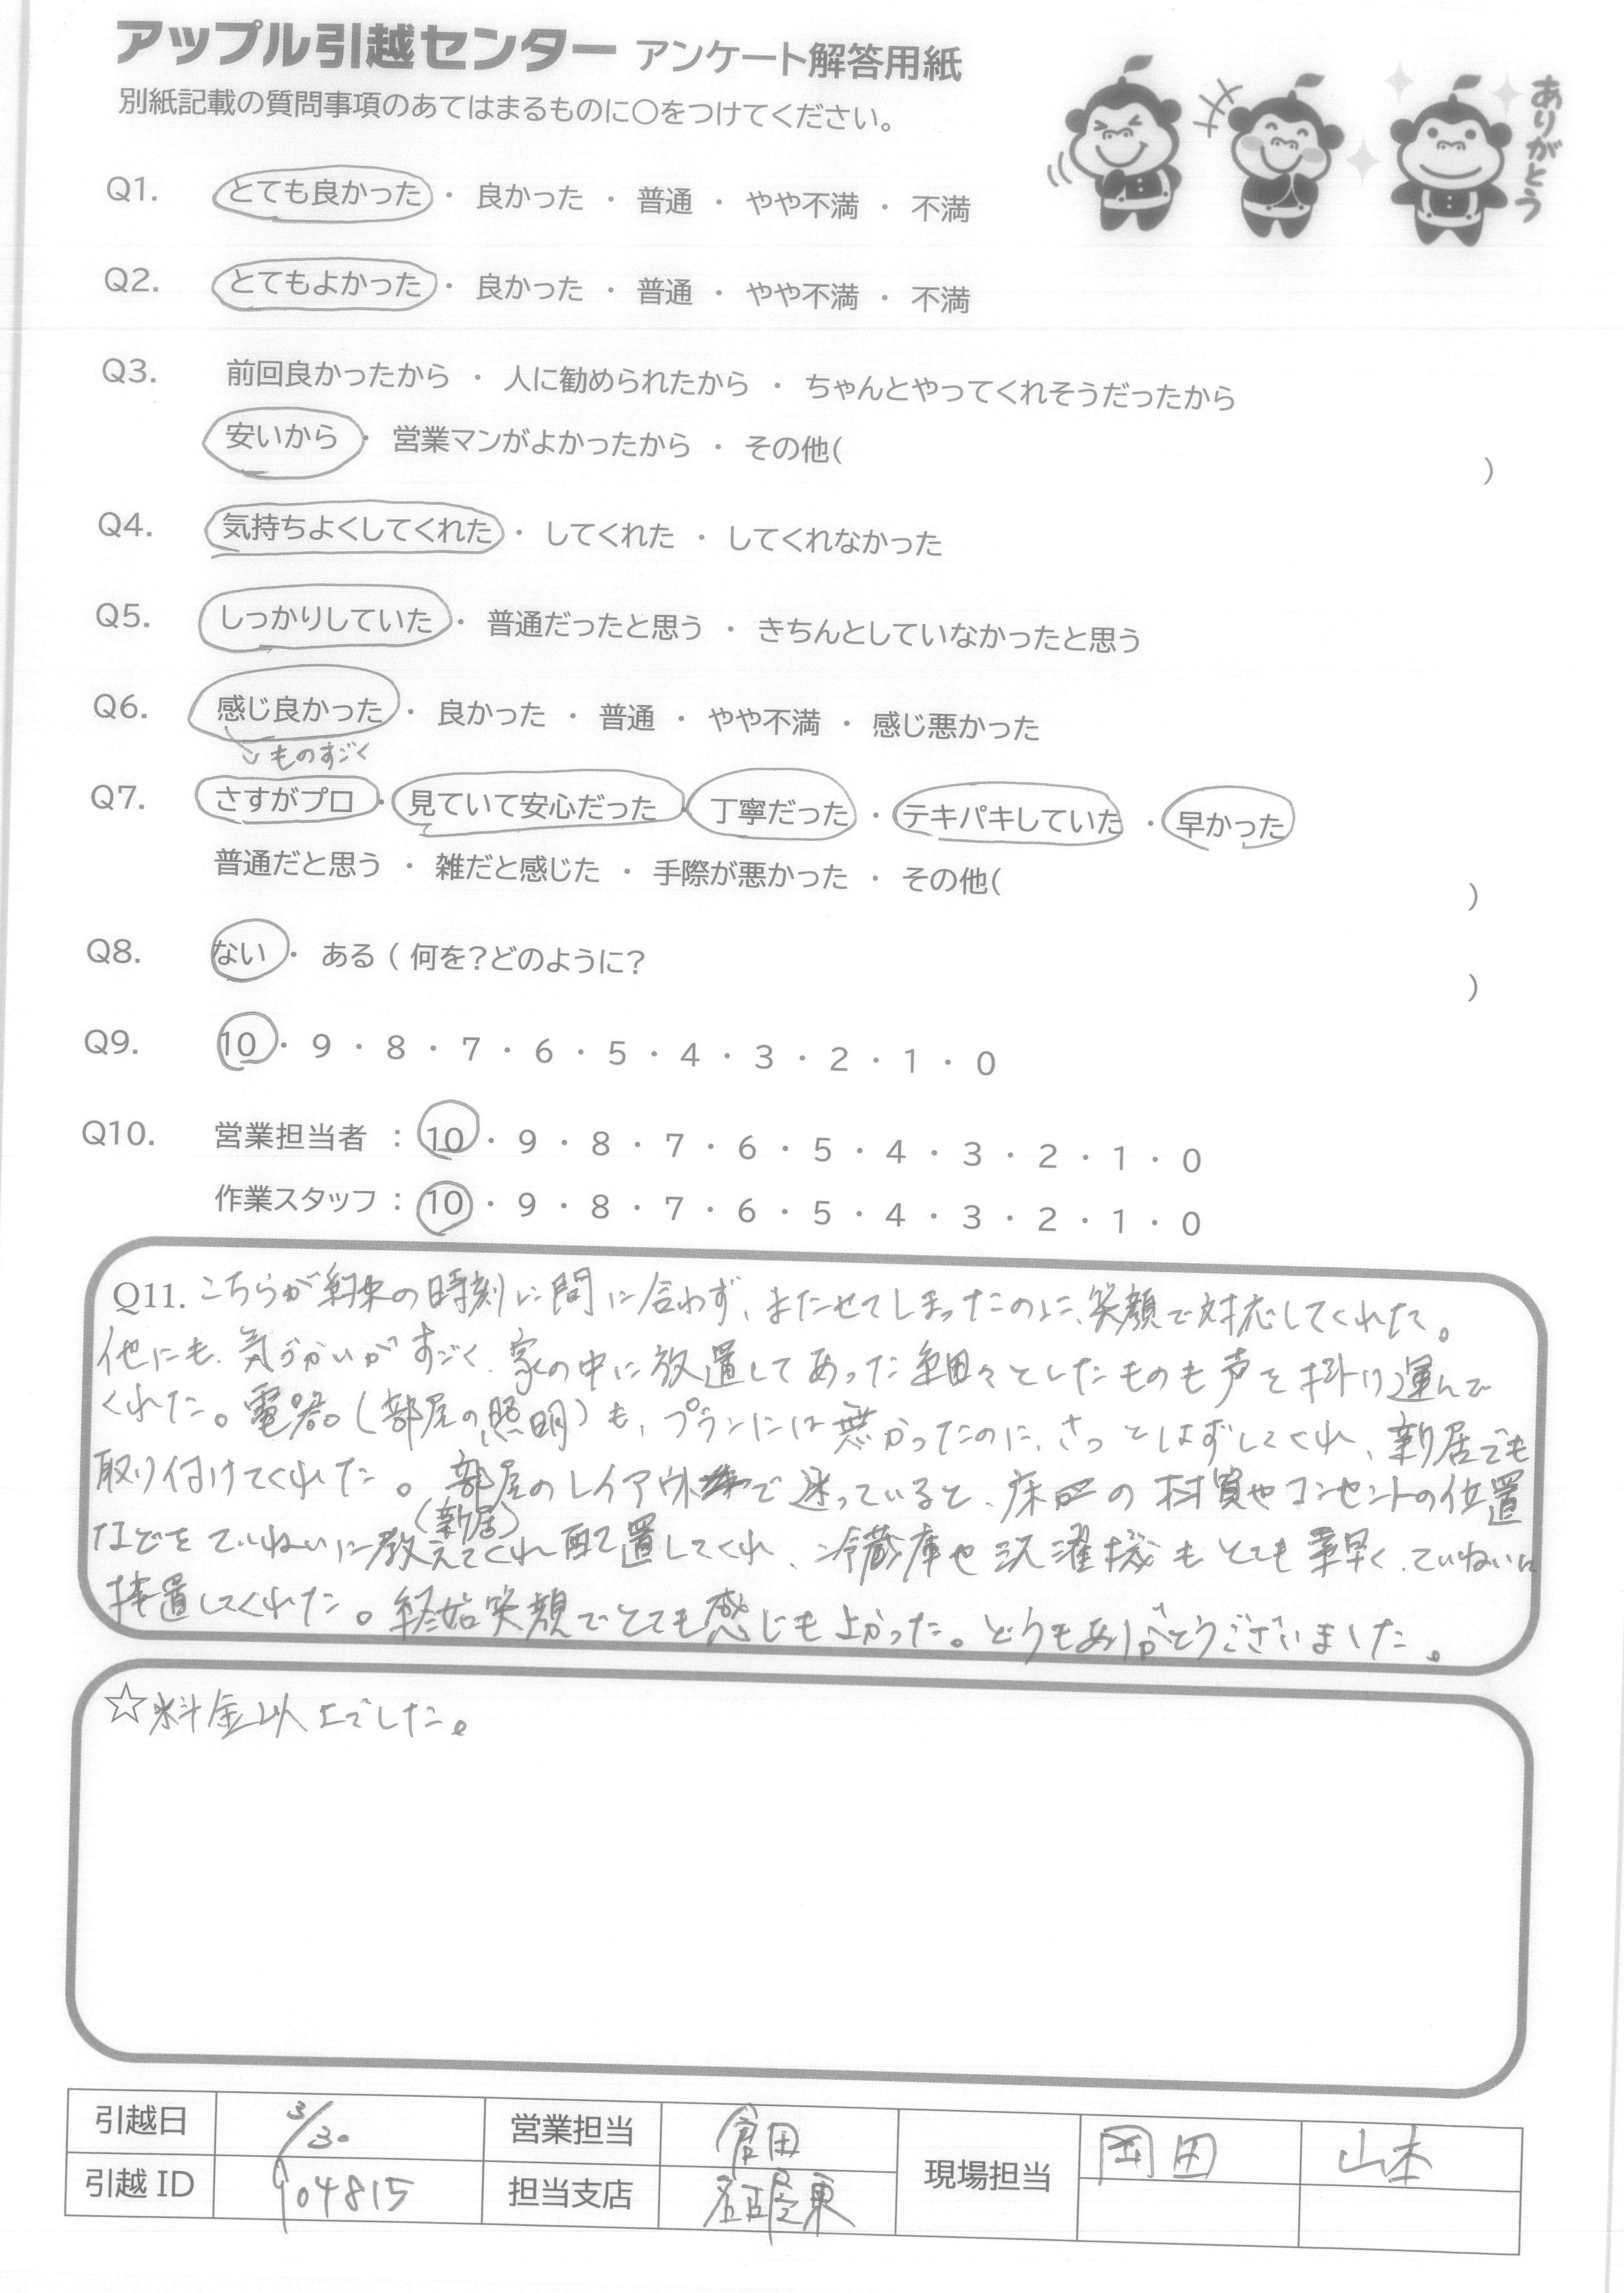 アップル引越センター アンケート解答用紙
別紙記載の質問事項のあてはまるものに〇をつけてください。
ありがとう
Q1. とても良かった ・ 良かった ・ 普通 ・ やや不満 ・ 不満
Q2. とてもよかった ・ 良かった ・ 普通 ・ やや不満 ・ 不満
Q3. 前回良かったから ・ 人に勧められたから ・ ちゃんとやってくれそうだったから
安いから ・ 営業マンがよかったから ・ その他( )
Q4. 気持ちよくしてくれた ・ してくれた ・ してくれなかった
Q5. しっかりしていた ・ 普通だったと思う ・ きちんとしていなかったと思う
Q6. 感じ良かった ・ 良かった ・ 普通 ・ やや不満 ・ 感じ悪かった
ものすごく
Q7. さすがプロ ・ 見ていて安心だった ・ 丁寧だった ・ テキパキしていた ・ 早かった
普通だと思う ・ 雑だと感じた ・ 手際が悪かった ・ その他( )
Q8. ない ・ ある ( 何を?どのように? )
Q9. 10 ・ 9 ・ 8 ・ 7 ・ 6 ・ 5 ・ 4 ・ 3 ・ 2 ・ 1 ・ 0
Q10. 営業担当者 : 10 ・ 9 ・ 8 ・ 7 ・ 6 ・ 5 ・ 4 ・ 3 ・ 2 ・ 1 ・ 0
作業スタッフ : 10 ・ 9 ・ 8 ・ 7 ・ 6 ・ 5 ・ 4 ・ 3 ・ 2 ・ 1 ・ 0
Q11. こちらが約束の時刻に間に合わず、またせてしまったのに、笑顔で対応してくれた。
他にも、気づかいがすごく、家の中に放置してあった細々としたものも声を掛け運んで
くれた。電器(部屋の照明)も、プランには無かったのに、さっとはずしてくれ、新居でも
取り付けてくれた。部屋のレイアウトで迷っていると、床の材質やコンセントの位置
(新居)
などをていねいに教えてくれ配置してくれ、冷蔵庫や洗濯機もとても素早く、ていねいに
接置してくれた。終始笑顔でとても感じも よかった。どうもありがとうございました。
☆料金以上でした。
引越日 3/30 営業担当 現場担当 岡田 山本
引越 ID 904815 担当支店 名古屋東